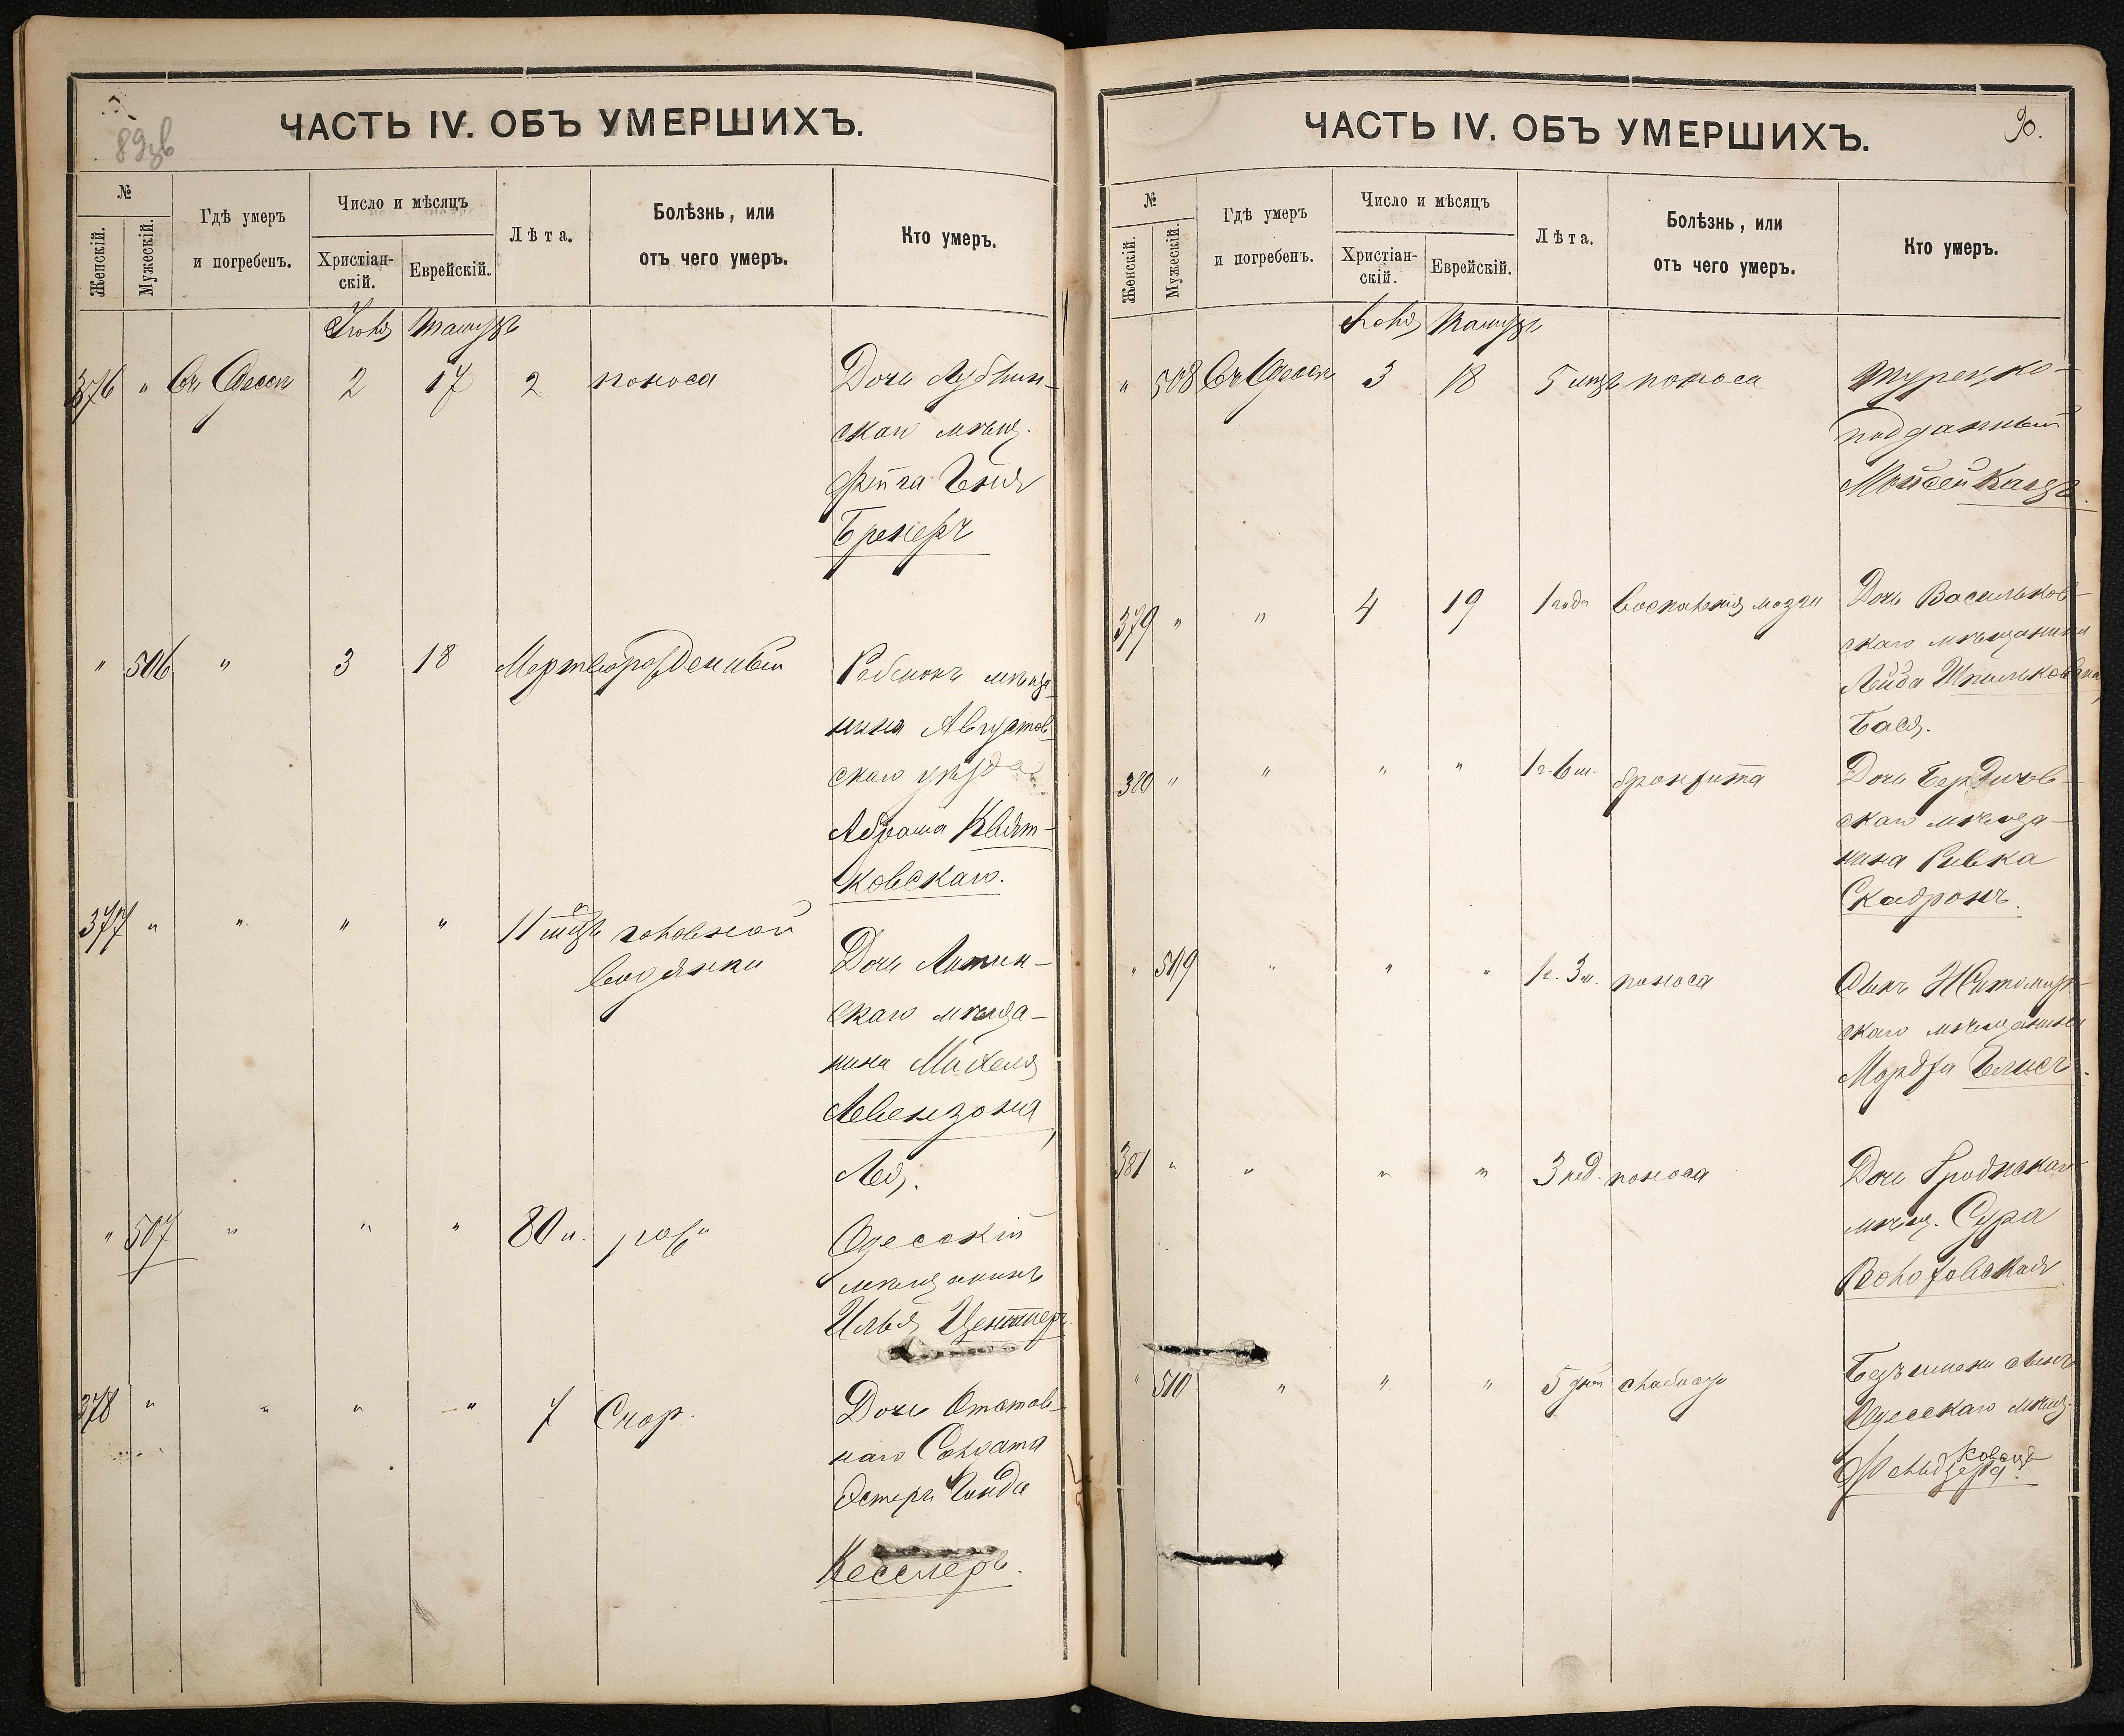 89зв
ЧАСТЬ IV. ОБЪ УМЕРШИХЪ.
№
Женскій.
Мужескій.
Гдѣ умеръ
и погребенъ.
Число и мѣсяцъ
Христіан-
скій.
Еврейскій.
Лѣта.
Болѣзнь, или
отъ чего умеръ.
Кто умеръ.
Іюля Тамузъ
376 " Въ Одессѣ 2 17 2 поноса Дочь Дубин-
скаго мѣщ.
Фейга Беня
Бренеръ
" 506 " 3 18 Мертворожденный Ребенокъ мѣща-
нина Августов-
скаго уѣзда
Абрама Квят-
ковскаго.
377 " " " " 11 мцъ головной
водянки
Дочь Летин-
скаго мѣща-
нина Михеля
Левензона,
Лея.
" 507 " " " 80 л. рожи Одесскій
мѣщанинъ
Илья Центнеръ
378 " " " " 7 Скор. Дочь Отстав-
наго Солдата
Эстеръ Гинда
Кесслеръ.
ЧАСТЬ IV. ОБЪ УМЕРШИХЪ.
90.
№
Женскій.
Мужескій.
Гдѣ умеръ
и погребенъ.
Число и мѣсяцъ
Христіан-
скій.
Еврейскій.
Лѣта.
Болѣзнь, или
отъ чего умеръ.
Кто умеръ.
Іюля Тамузъ
" 508 Въ Одессѣ 3 18 5 мцъ поноса Турецко-
подданный
Мойсей Кацъ.
379 " " 4 19 1 года воспаленія мозга Дочь Васильков-
скаго мѣщанина
Лейба Шпильковна,
Бася.
380 " " " " 1 г. 6 м. бронхита Дочь Бердичов-
скаго мѣща-
нина Ривка
Скадронъ.
" 509 " " " 1 г. 3 м. поноса Сынъ Житомир-
скаго мѣщанина
Мордха Белисъ.
381 " " " " 3 нед. поноса Дочь Гроднскаго
мѣщ. Сура
Волоховская
" 510 " " " 5 дней слабости Безъ имени сынъ
Одесскаго мѣщ.